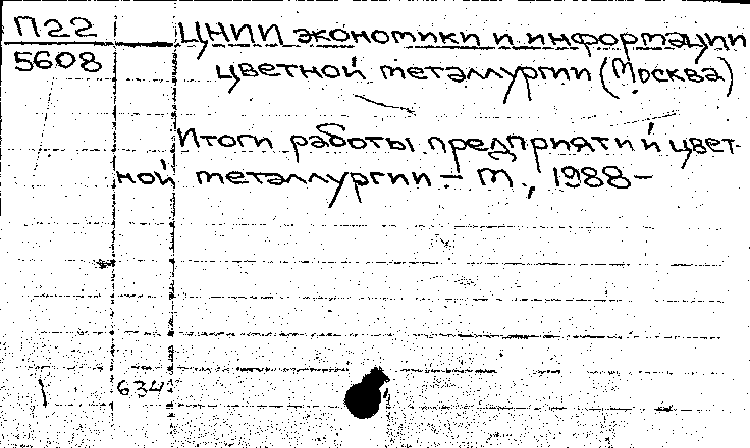 П22 ЦНИИ экономики и информации
5608 цветной металлургии (Москва)
Итоги работы предприятий цвет-
ной металлургии. – М., 1988–
634